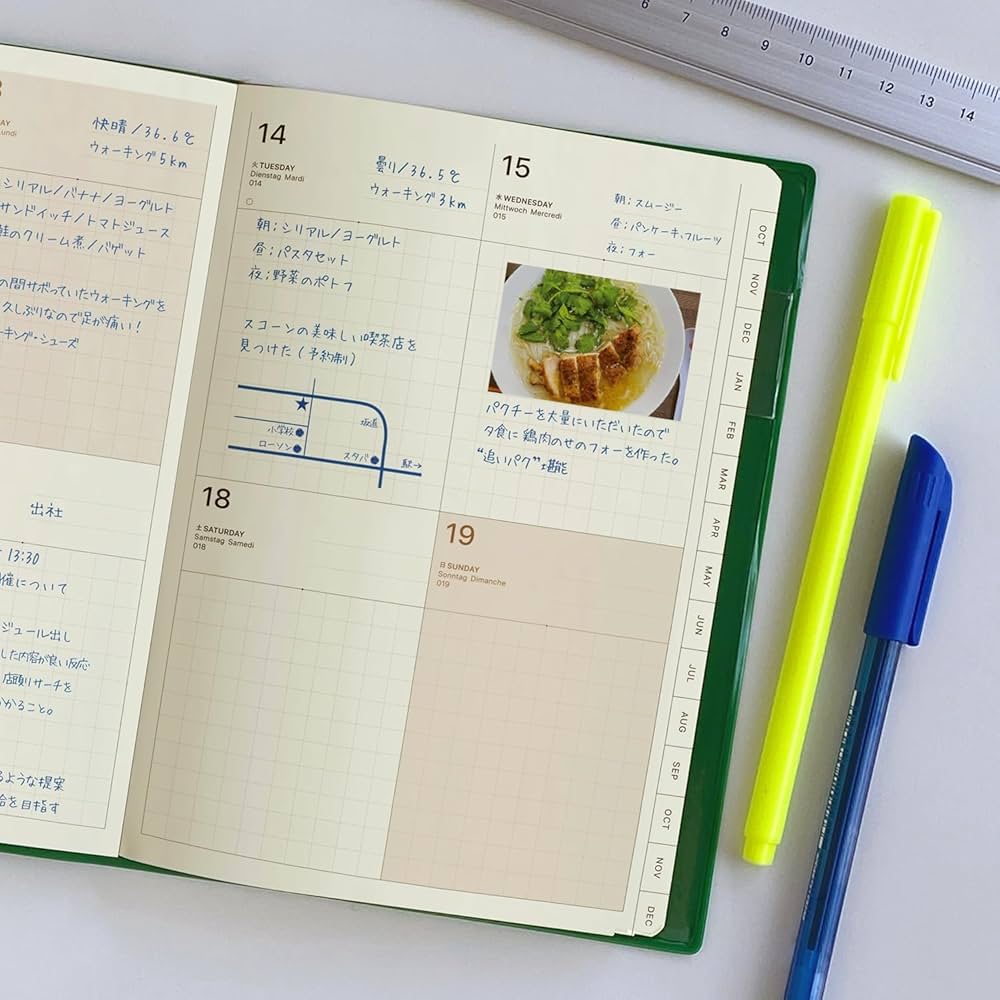 undi
快晴/36.6℃
ウォーキング5km
シリアル/バナナ/ヨーグルト
サンドイッチ/トマトジュース
鮭のクリーム煮/バゲット
の間サボっていたウォーキングを
久しぶりなので足が痛い!
ーキング・シューズ
出社
13:30
催について
ジュール出し
した内容が良い反応
店頭リサーチを
かること。
るような提案
合を目指す
14
火 TUESDAY
Dienstag Mardi
014
曇り/36.5℃
ウォーキング3km
朝;シリアル/ヨーグルト
昼;パスタセット
夜;野菜のポトフ
スコーンの美味しい喫茶店を
見つけた(予約制)
★
小学校
ローソン
坂道
スタバ
駅→
15
水 WEDNESDAY
Mittwoch Mercredi
015
朝;スムージー
昼;パンケーキ、フルーツ
夜;フォー
パクチーを大量にいただいたので
夕食に鶏肉のせのフォーを作った。
“追いパク”堪能
18
土 SATURDAY
Samstag Samedi
018
19
日 SUNDAY
Sonntag Dimanche
019
OCT
NOV
DEC
JAN
FEB
MAR
APR
MAY
JUN
JUL
AUG
SEP
OCT
NOV
DEC
6 7 8 9 10 11 12 13 14